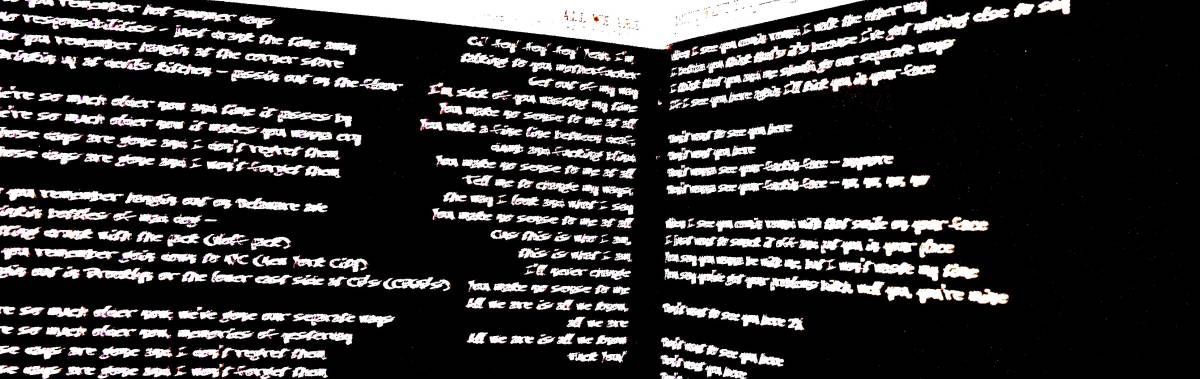 you remember hot summer days
no responsibilities - just drank the time away
do you remember hangin at the corner store
drinkin at devils kitchen - passin out on the floor
we're so much older now and time it passes by
we're so much older now it makes you wanna cry
those days are gone and I don't regret them
those days are gone and I won't forget them
you remember hangin out on Delaware ave
drinkin bottles of mad dog -
getting drunk with the jack
you remember goin down to NYC (New York City)
hangin out in Brooklyn or the lower east side at CB's (CBGB's)
we're so much older now, we've gone our separate ways
we're so much older now, memories of yesterday
those days are gone and I don't regret them
those days are gone and I won't forget them
ALL WE ARE
hey hey hey yeah, I'm
talking to you motherfucker
Get out of my way
I'm sick of you wasting my time
You make no sense to me at all
You walk a fine line between deaf,
dumb and fucking blind
You make no sense to me at all
Tell me to change my ways,
the way I look and what I say
You make no sense to me at all
Cus this is who I am,
this is what I am,
I'll never change
You make no sense to me
All we are is all we know,
all we are
All we are is all we know
fuck You!
When I see you comin round I walk the other way
I betcha you think that's it's because I've got nothing else to say
I think that you and me should go our separate ways
If I see you here again I'll kick you in your face
Don't want to see you here
Don't want you here
Don't wanna see your fuckin face - anymore
Don't wanna see your fuckin face - no, no, no, no
When I see you comin round with that smile on your face
I just want to smack it off and put you in your place
You say you wanna be with me, but I won't waste my time
You say you've got your problems bitch, well you, you're mine
Don't want to see you here 2x
Don't want to see you here
Don't want you here